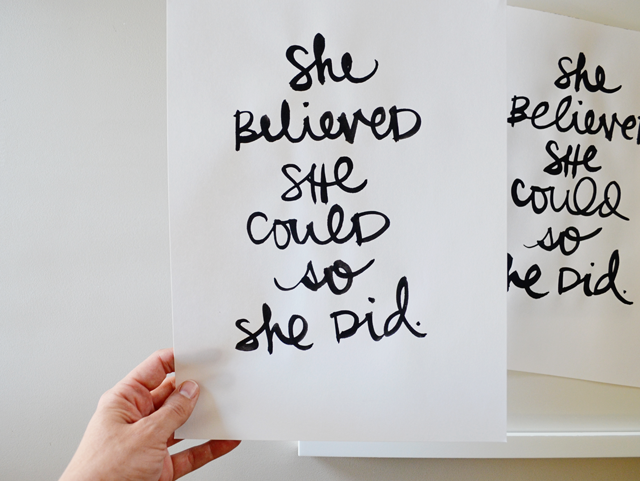 She
BelieveD
SHe
COULD
so
she Did.
She
Believe
SHe
could
so
he Did.